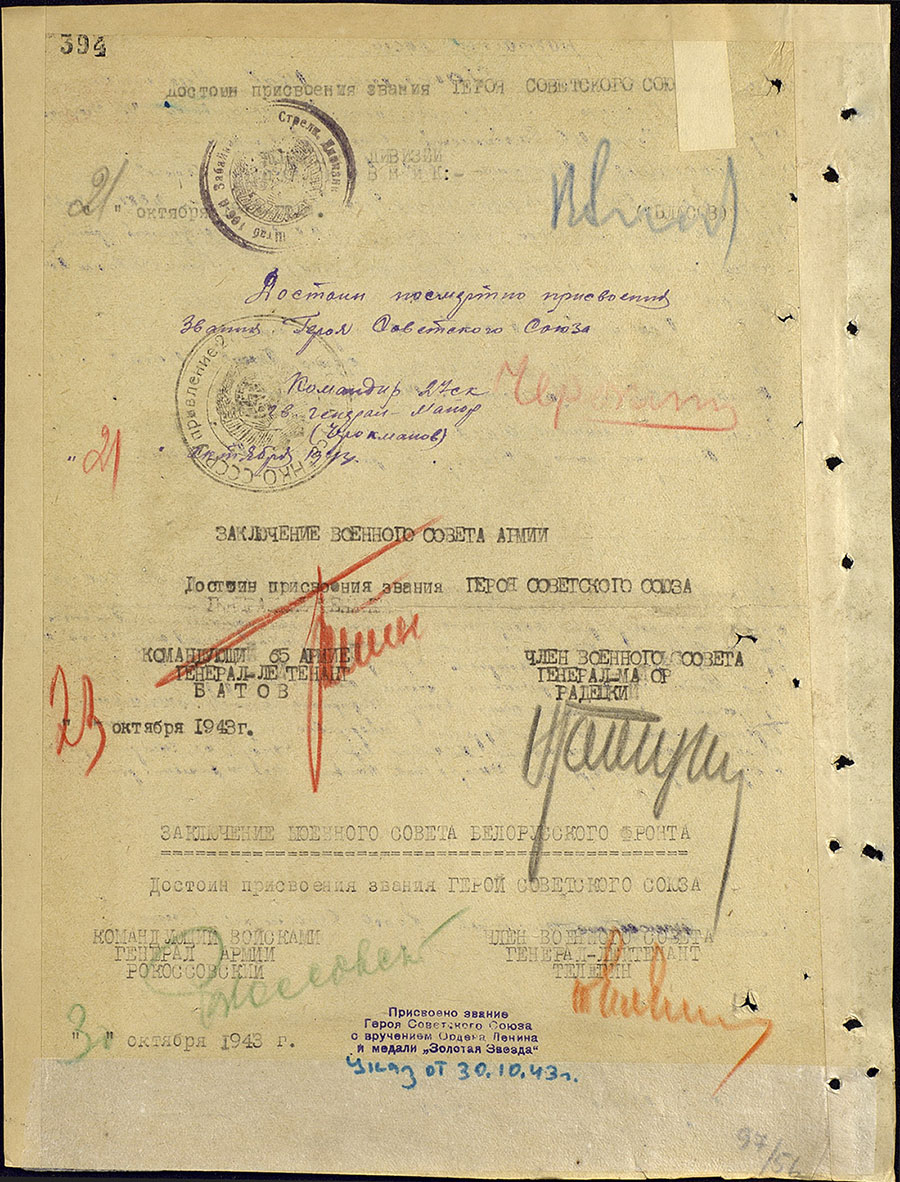 394
Достоин присвоения звания ГЕРОЯ СОВЕТСКОГО СОЮ
Штаб 106-й Забайк Стрелк. Дивизии
ДИВИЗИИ
21 " октября
Достоин посмертно присвоения
Звания Героя Советского Союза
Командир 27 ск
гв. генерал-майор
(Черокманов)
НКО-СССР Управление 2
" 21 " октября 1943.
ЗАКЛЮЧЕНИЕ ВОЕННОГО СОВЕТА АРМИИ
Достоин присвоения звания ГЕРОЯ СОВЕТСКОГО СОЮЗА
КОМАНДУЮЩИ 65 АРМИЕ ЧЛЕН ВОЕННОГО СОВЕТА
ГЕНЕРАЛ-ЛЕ ТЕНАНТ ГЕНЕРАЛ-МА ОР
БАТОВ РАДЕЦКИ
23 " октября 1943г.
ЗАКЛЮЧЕНИЕ ВОЕННОГО СОВЕТА БЕЛОРУССКОГО ФРОНТА
Достоин присвоения звания ГЕРОЙ СОВЕТСКОГО СОЮЗА
КОМАНДУЮЩИЙ ВОЙСКАМИ ЧЛЕН ВОЕННОГО СОВЕТА
ГЕНЕРАЛ АРМИИ ГЕНЕРАЛ-ЛЕЙТЕНАНТ
РОКОССОВСКИЙ ТЕЛЕГИН
" " октября 1943 г.
Присвоено звание
Героя Советского Союза
с вручением Ордена Ленина
и медали „Золотая Звезда"
Указ от 30.10.43г.
97/56